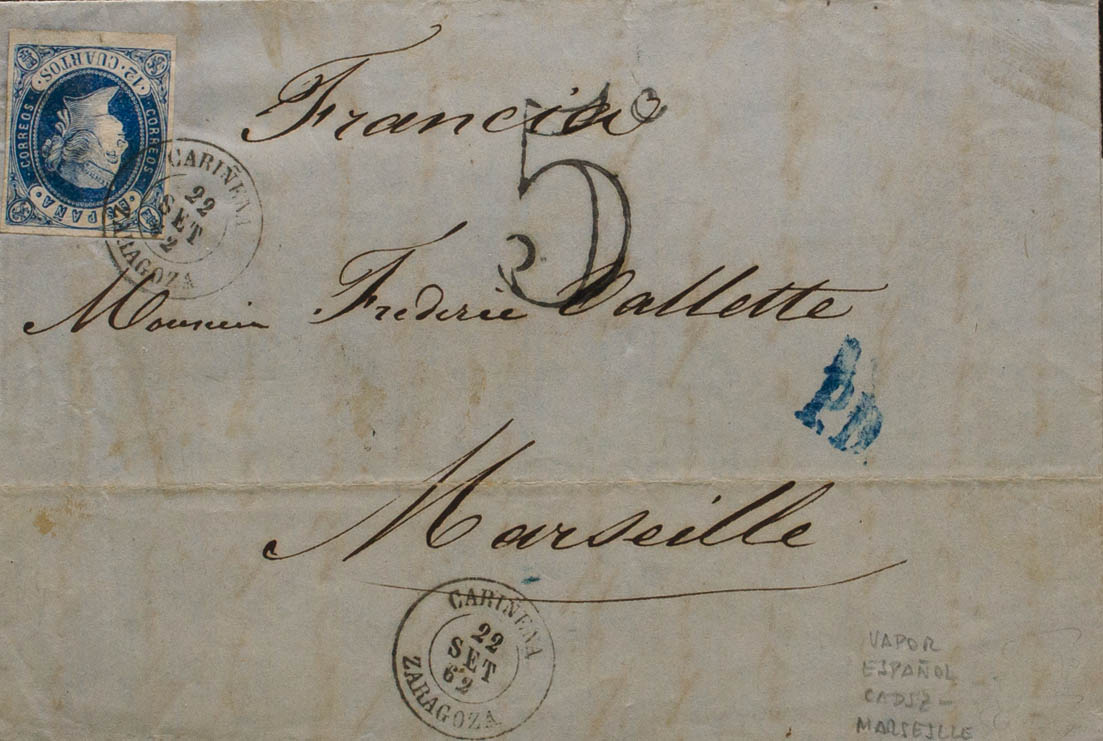 12 CUARTOS.
CORREOS
CORREOS
ESPAÑA
CARIÑENA
22
SET
62
ZARAGOZA
Francia
5
Monsieur Frederic Vallette
P.D
Marseille
CARIÑENA
22
SET
62
ZARAGOZA
VAPOR
ESPAÑOL
CADIZ -
MARSEILLE